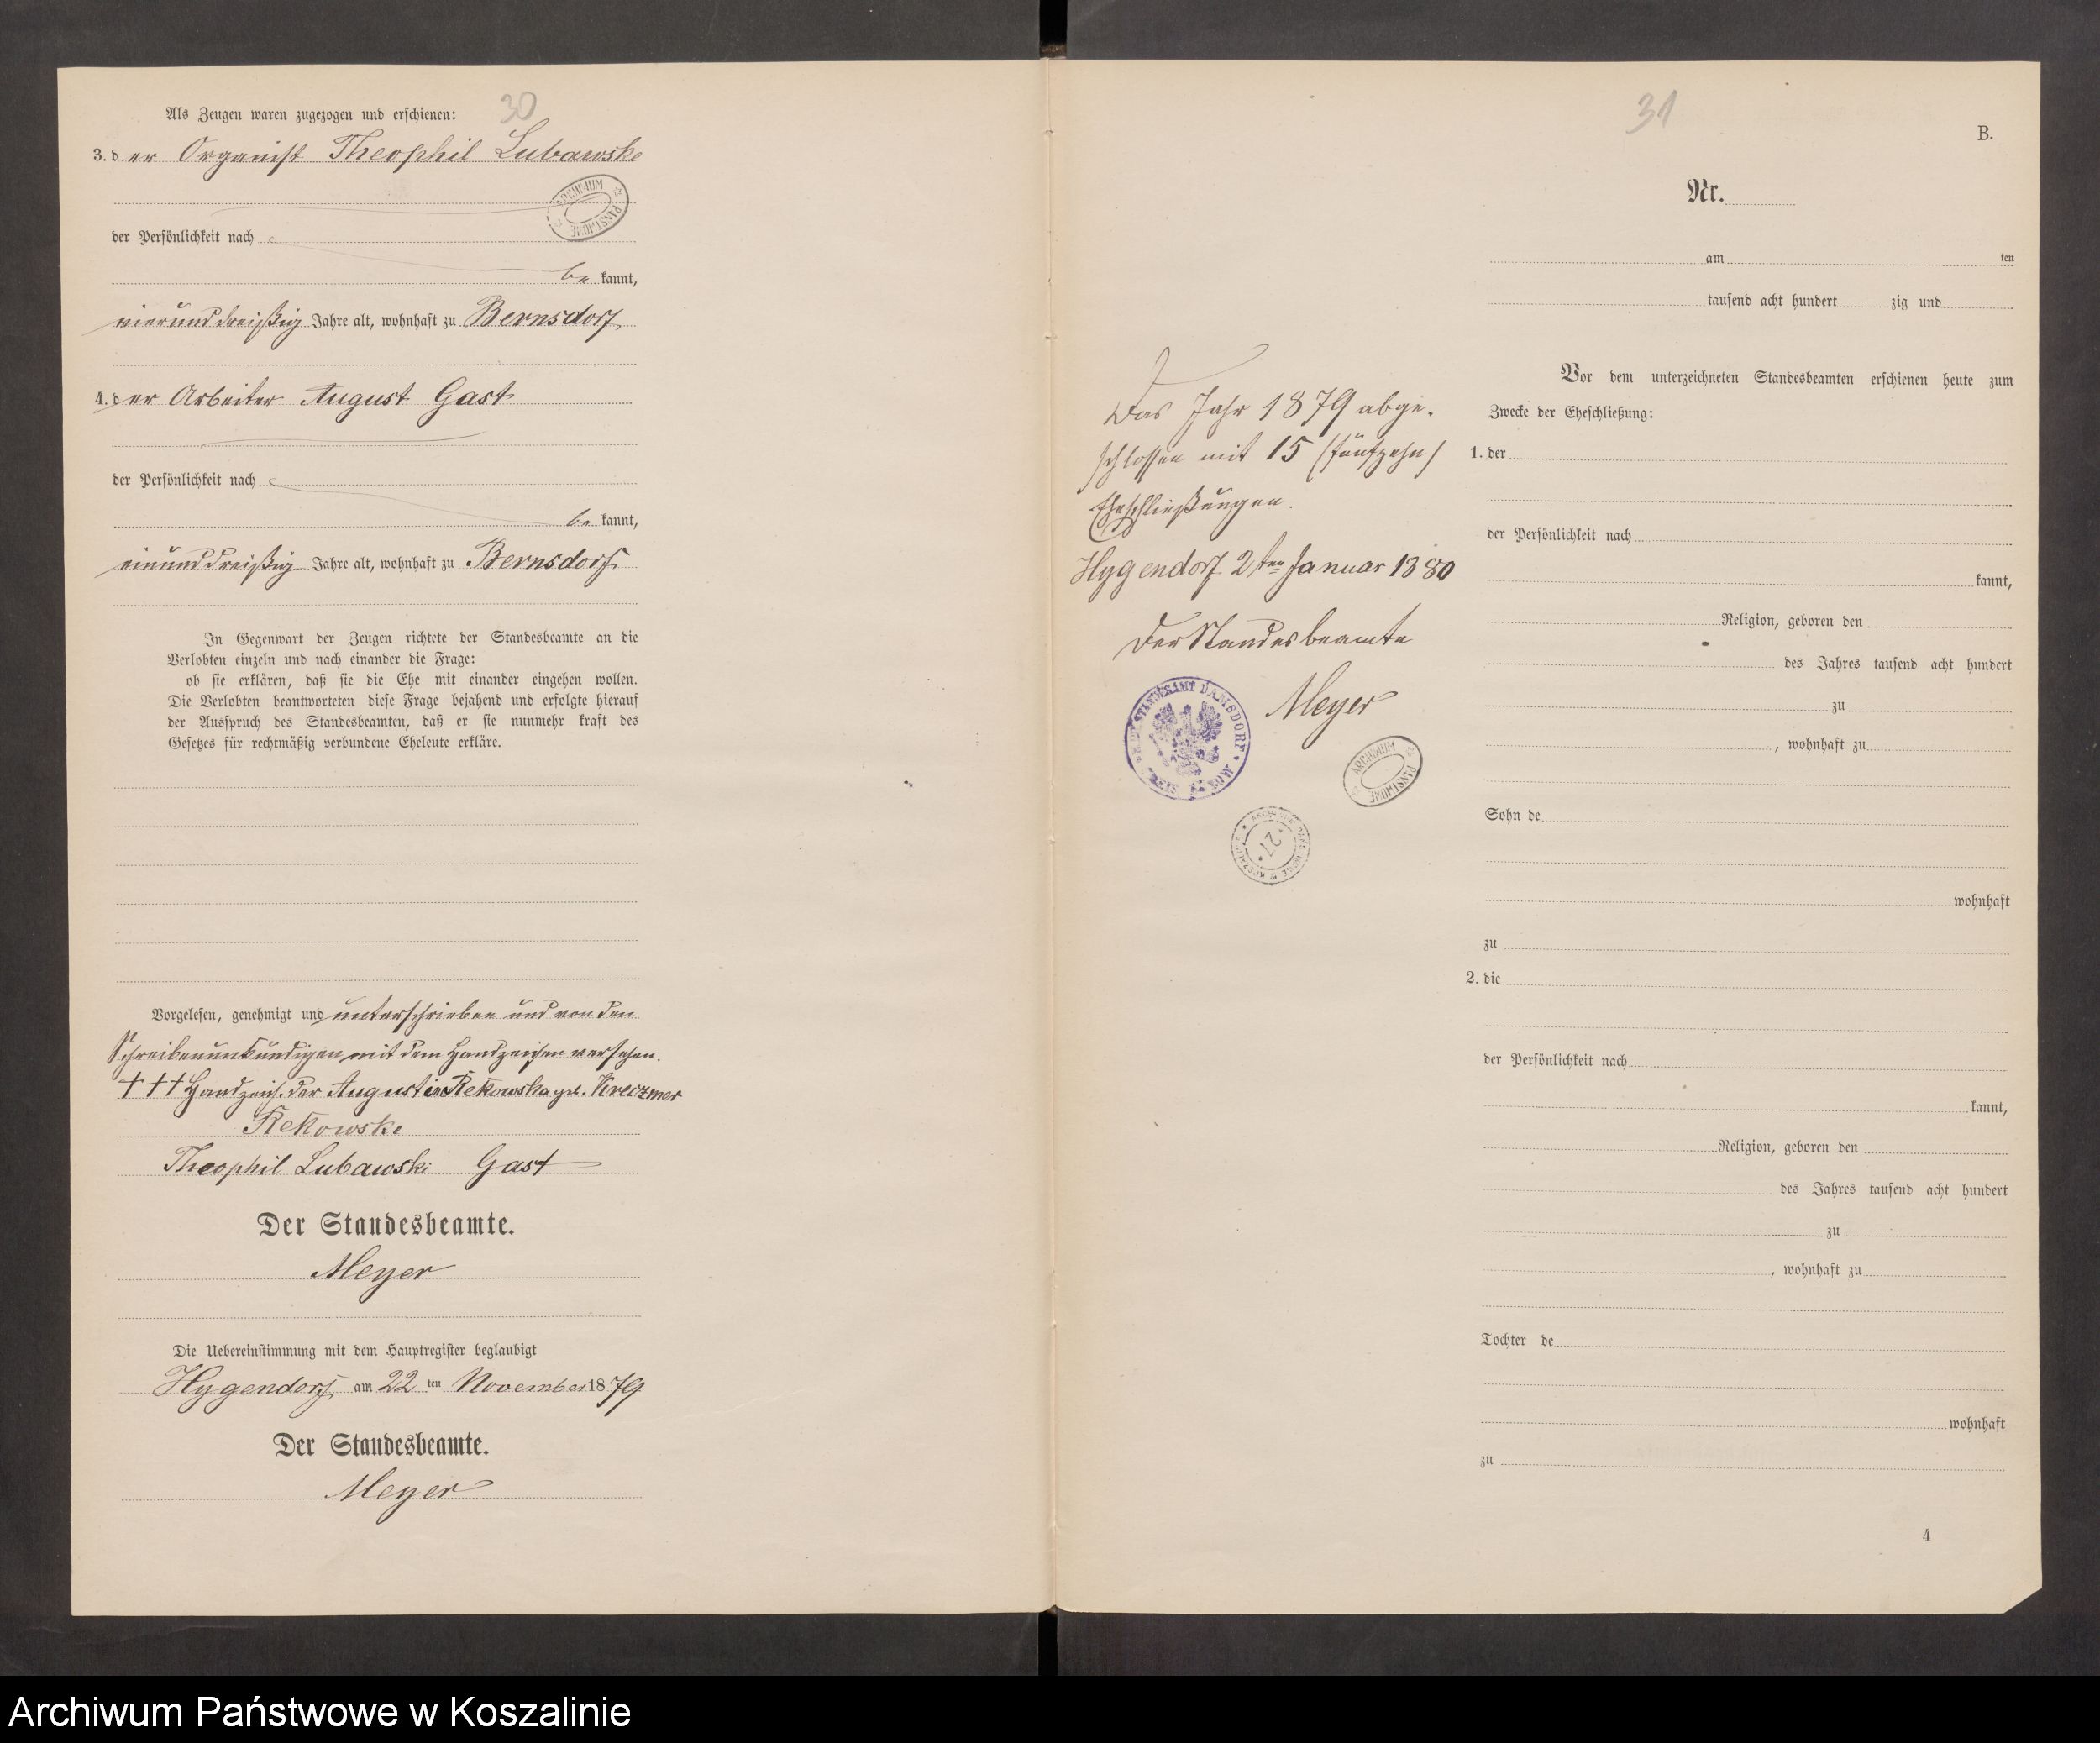 30
Als Zeugen waren zugezogen und erschienen:
3. der Organist Theophil Lubawske
ARCHIWUM PAŃSTWOWE
der Persönlichkeit nach
be kannt,
vierunddreißig Jahre alt, wohnhaft zu Bernsdorf
4. der Arbeiter August Gast
der Persönlichkeit nach
be kannt,
einunddreißig Jahre alt, wohnhaft zu Bernsdorf
In Gegenwart der Zeugen richtete der Standesbeamte an die
Verlobten einzeln und nach einander die Frage:
ob sie erklären, daß sie die Ehe mit einander eingehen wollen.
Die Verlobten beantworteten diese Frage bejahend und erfolgte hierauf
der Ausspruch des Standesbeamten, daß er sie nunmehr kraft des
Gesetzes für rechtmäßig verbundene Eheleute erkläre.
Vorgelesen, genehmigt und unterschrieben und von den
Schreibenunkundigen mit dem Handzeichen versehen.
+++ Handzeich. der Augustine Rekowska geb. Kreczmer
Rekowske
Theophil Lubawski Gast
Der Standesbeamte.
Meyer
Die Uebereinstimmung mit dem Hauptregister beglaubigt
Hygendorf am 22 ten November 1879
Der Standesbeamte.
Meyer
31
B.
Nr.
am ten
tausend acht hundert zig und
Vor dem unterzeichneten Standesbeamten erschienen heute zum
Zwecke der Eheschließung:
1. der
der Persönlichkeit nach
kannt,
Religion, geboren den
des Jahres tausend acht hundert
zu
, wohnhaft zu
Sohn de
wohnhaft
zu
2. die
der Persönlichkeit nach
kannt,
Religion, geboren den
des Jahres tausend acht hundert
zu
, wohnhaft zu
Tochter de
wohnhaft
zu
4
Das Jahr 1879 abge-
schlossen mit 15 (fünfzehn)
Eheschließungen.
Hygendorf 2ten Januar 1880
Der Standesbeamte
Meyer
STANDESAMT DAMSDORF
ARCHIWUM PAŃSTWOWE
ARCHIWUM PAŃSTWOWE W KOSZALINIE
27
Archiwum Państwowe w Koszalinie